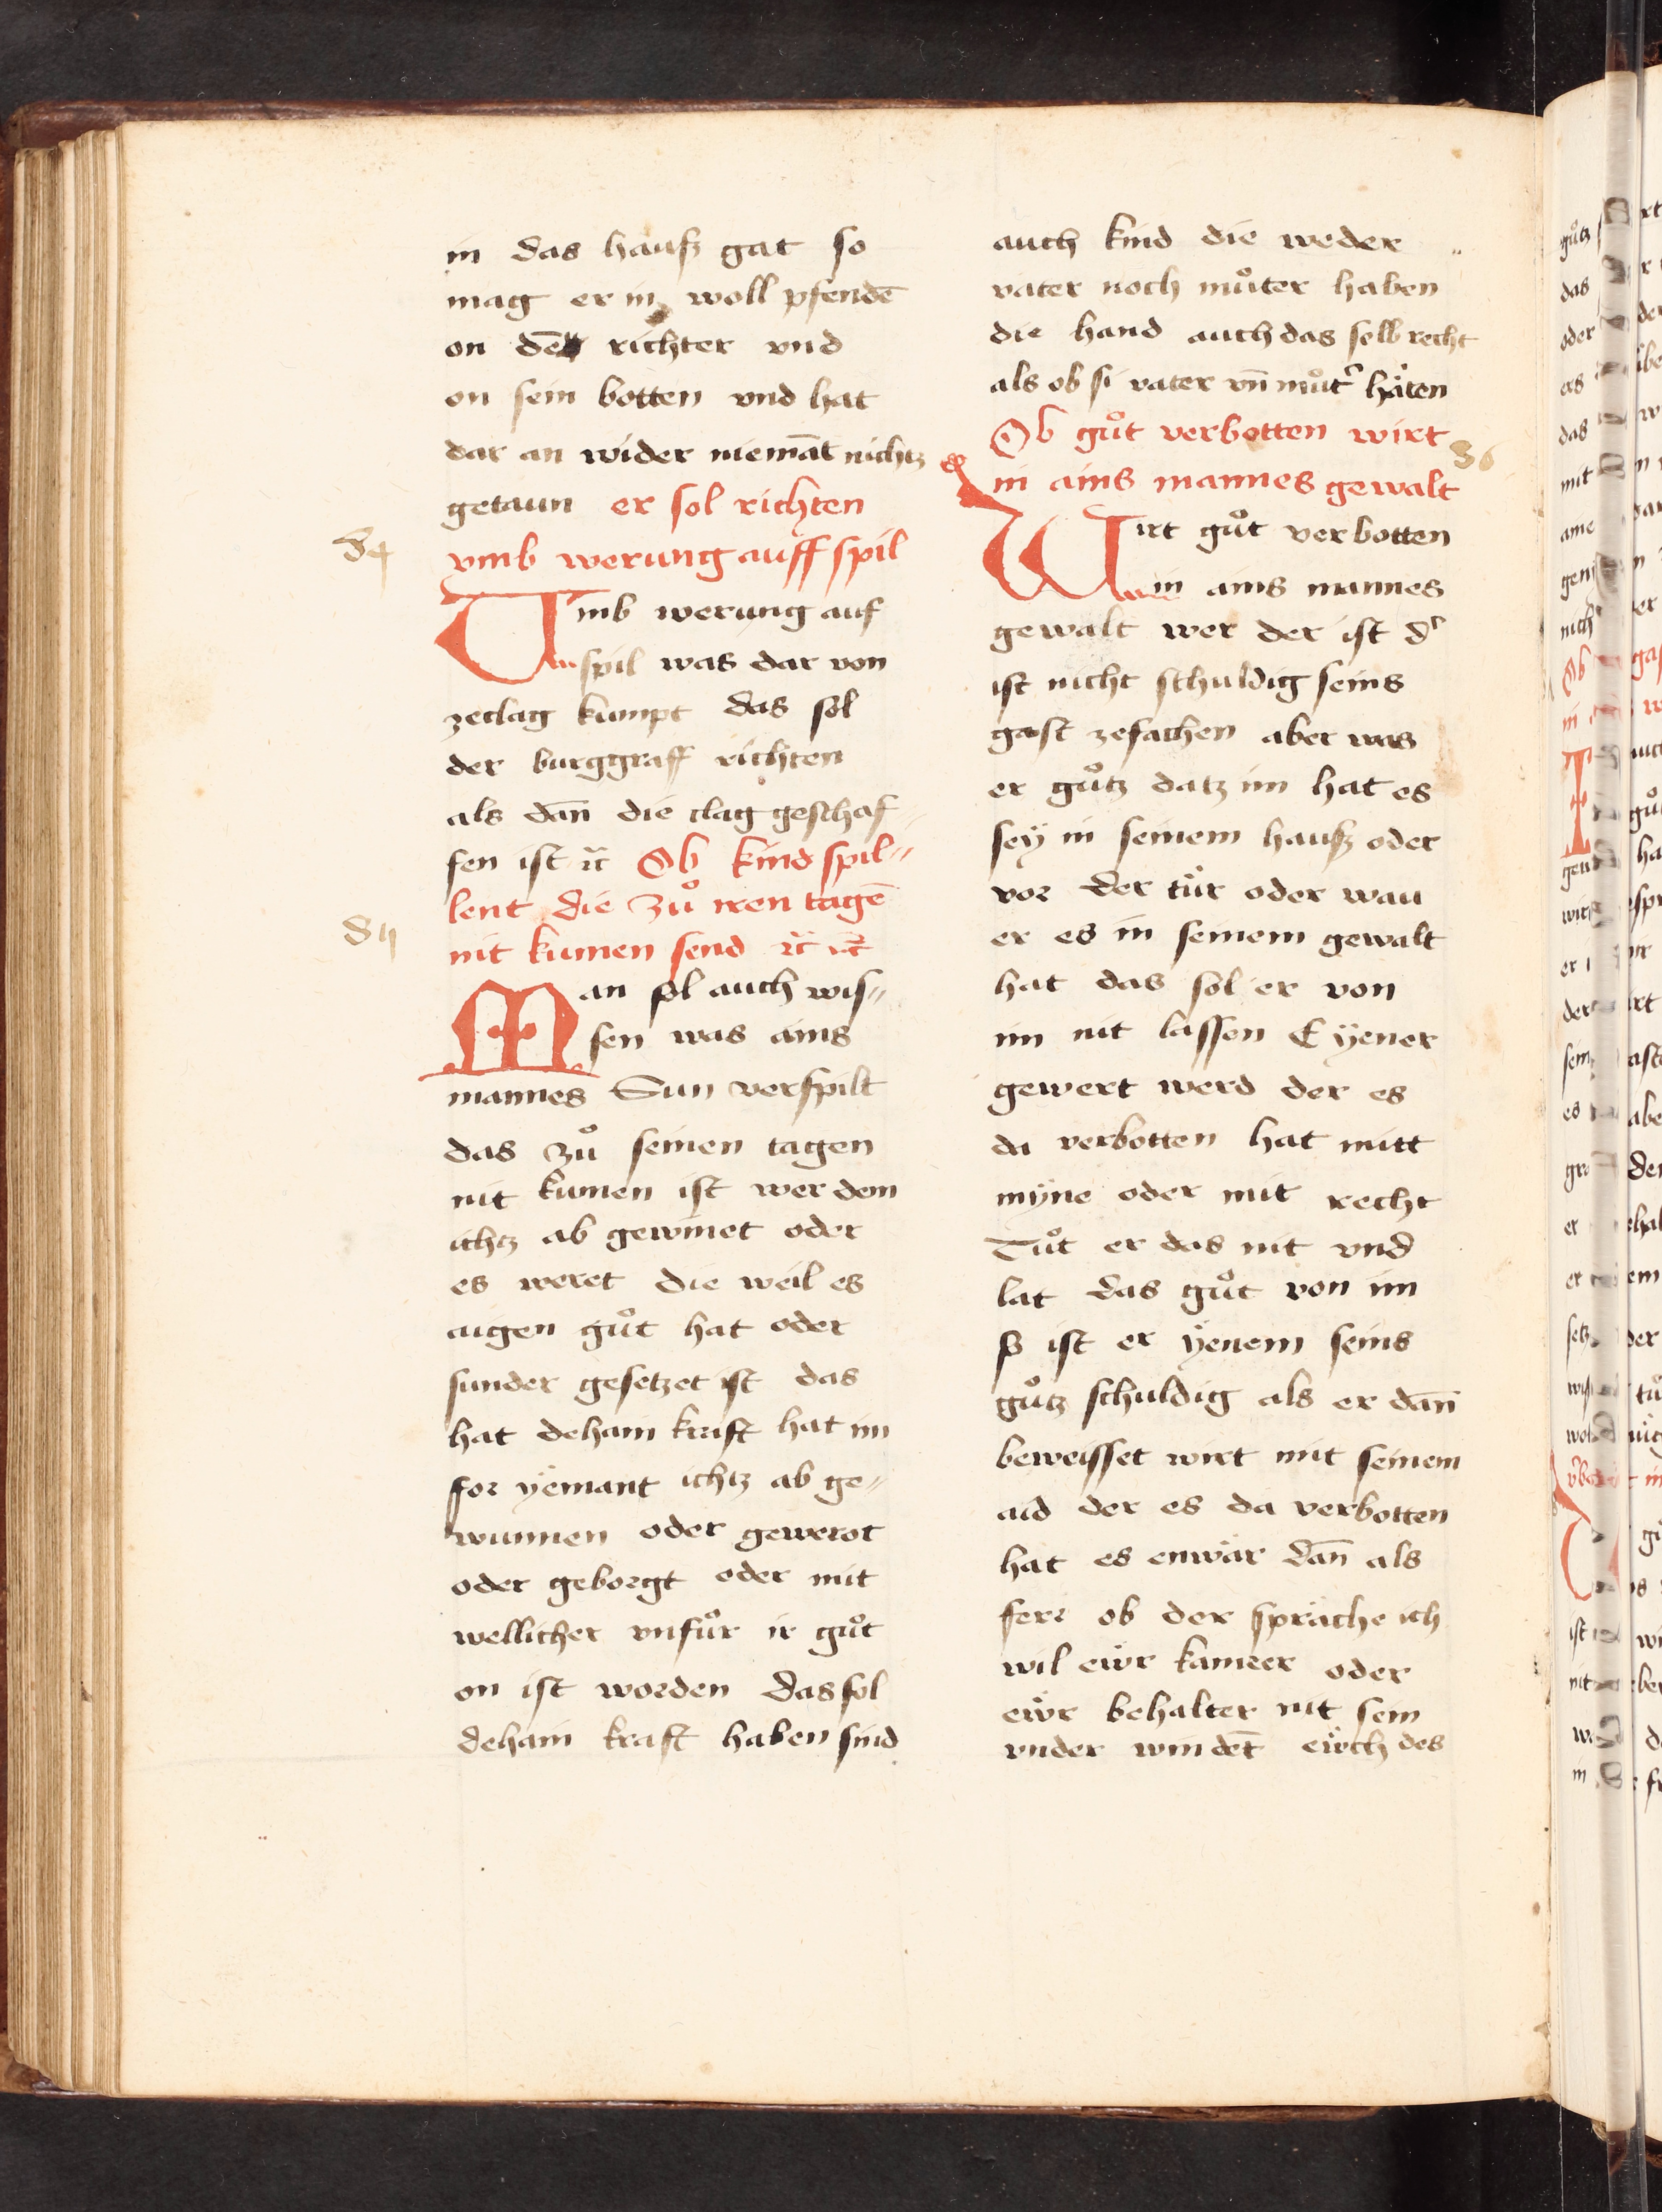 in das hauß gat so
mag er in woll pfendē
on dē richter vnd
on sein botten vnd hat
dar an wider niemāt nichtz
getaun er sol richten
vmb werung auff spil
Vmb werung auf
spil was dar von
zeclag kumpt das sol
der burggraff richten
als dañ die clag geschaf
fen ist ꝛc̄ Ob kind spil⸗
lent die zuͦ iren tagē
nit kumen send ꝛc̄ ꝛc̄
Man sol auch wis⸗
sen was ains
mannes Sun verspilt
das zuͦ seinen tagen
nit kumen ist wer dem
ichtz ab gewinet oder
es weret die weil es
aigen guͦt hat oder
sunder gesetzet ist das
hat dehain kraft hat im
for yemant ichtz ab ge⸗
wunnen oder gewerot
oder geborgt oder mit
wellicher vnfuͦr ir guͦt
on ist worden das sol
dehain kraft haben sind
auch kind die weder
vater noch muͦter haben
die hand auch das selb recht
als ob si vater vñ muͦtˀ häten
Ob guͦt verbotten wirt
in ains mannes gewalt
36
Wirt guͦt verbotten
in ains mannes
gewalt wer der ist dˀ
ist nicht schuldig seins
gast zefachen aber was
er guͦtz datz im hat es
seÿ in seinem hauß oder
vor der tür oder wau
er es in seinem gewalt
hat das sol er von
im nit lassen E ÿener
gewert werd der es
da verbotten hat mitt
mÿne oder mit recht
Tuͦt er das nit vnd
lat das guͦt von im
so ist er ÿenem seins
guͦtz schuldig als er dañ
beweisset wirt mit seinem
aid der es da verbotten
hat es enwär dañ als
ferr ob der spräche ich
wil ewr kamrer oder
ewr behalter nit sein
vnder windēt ewch des